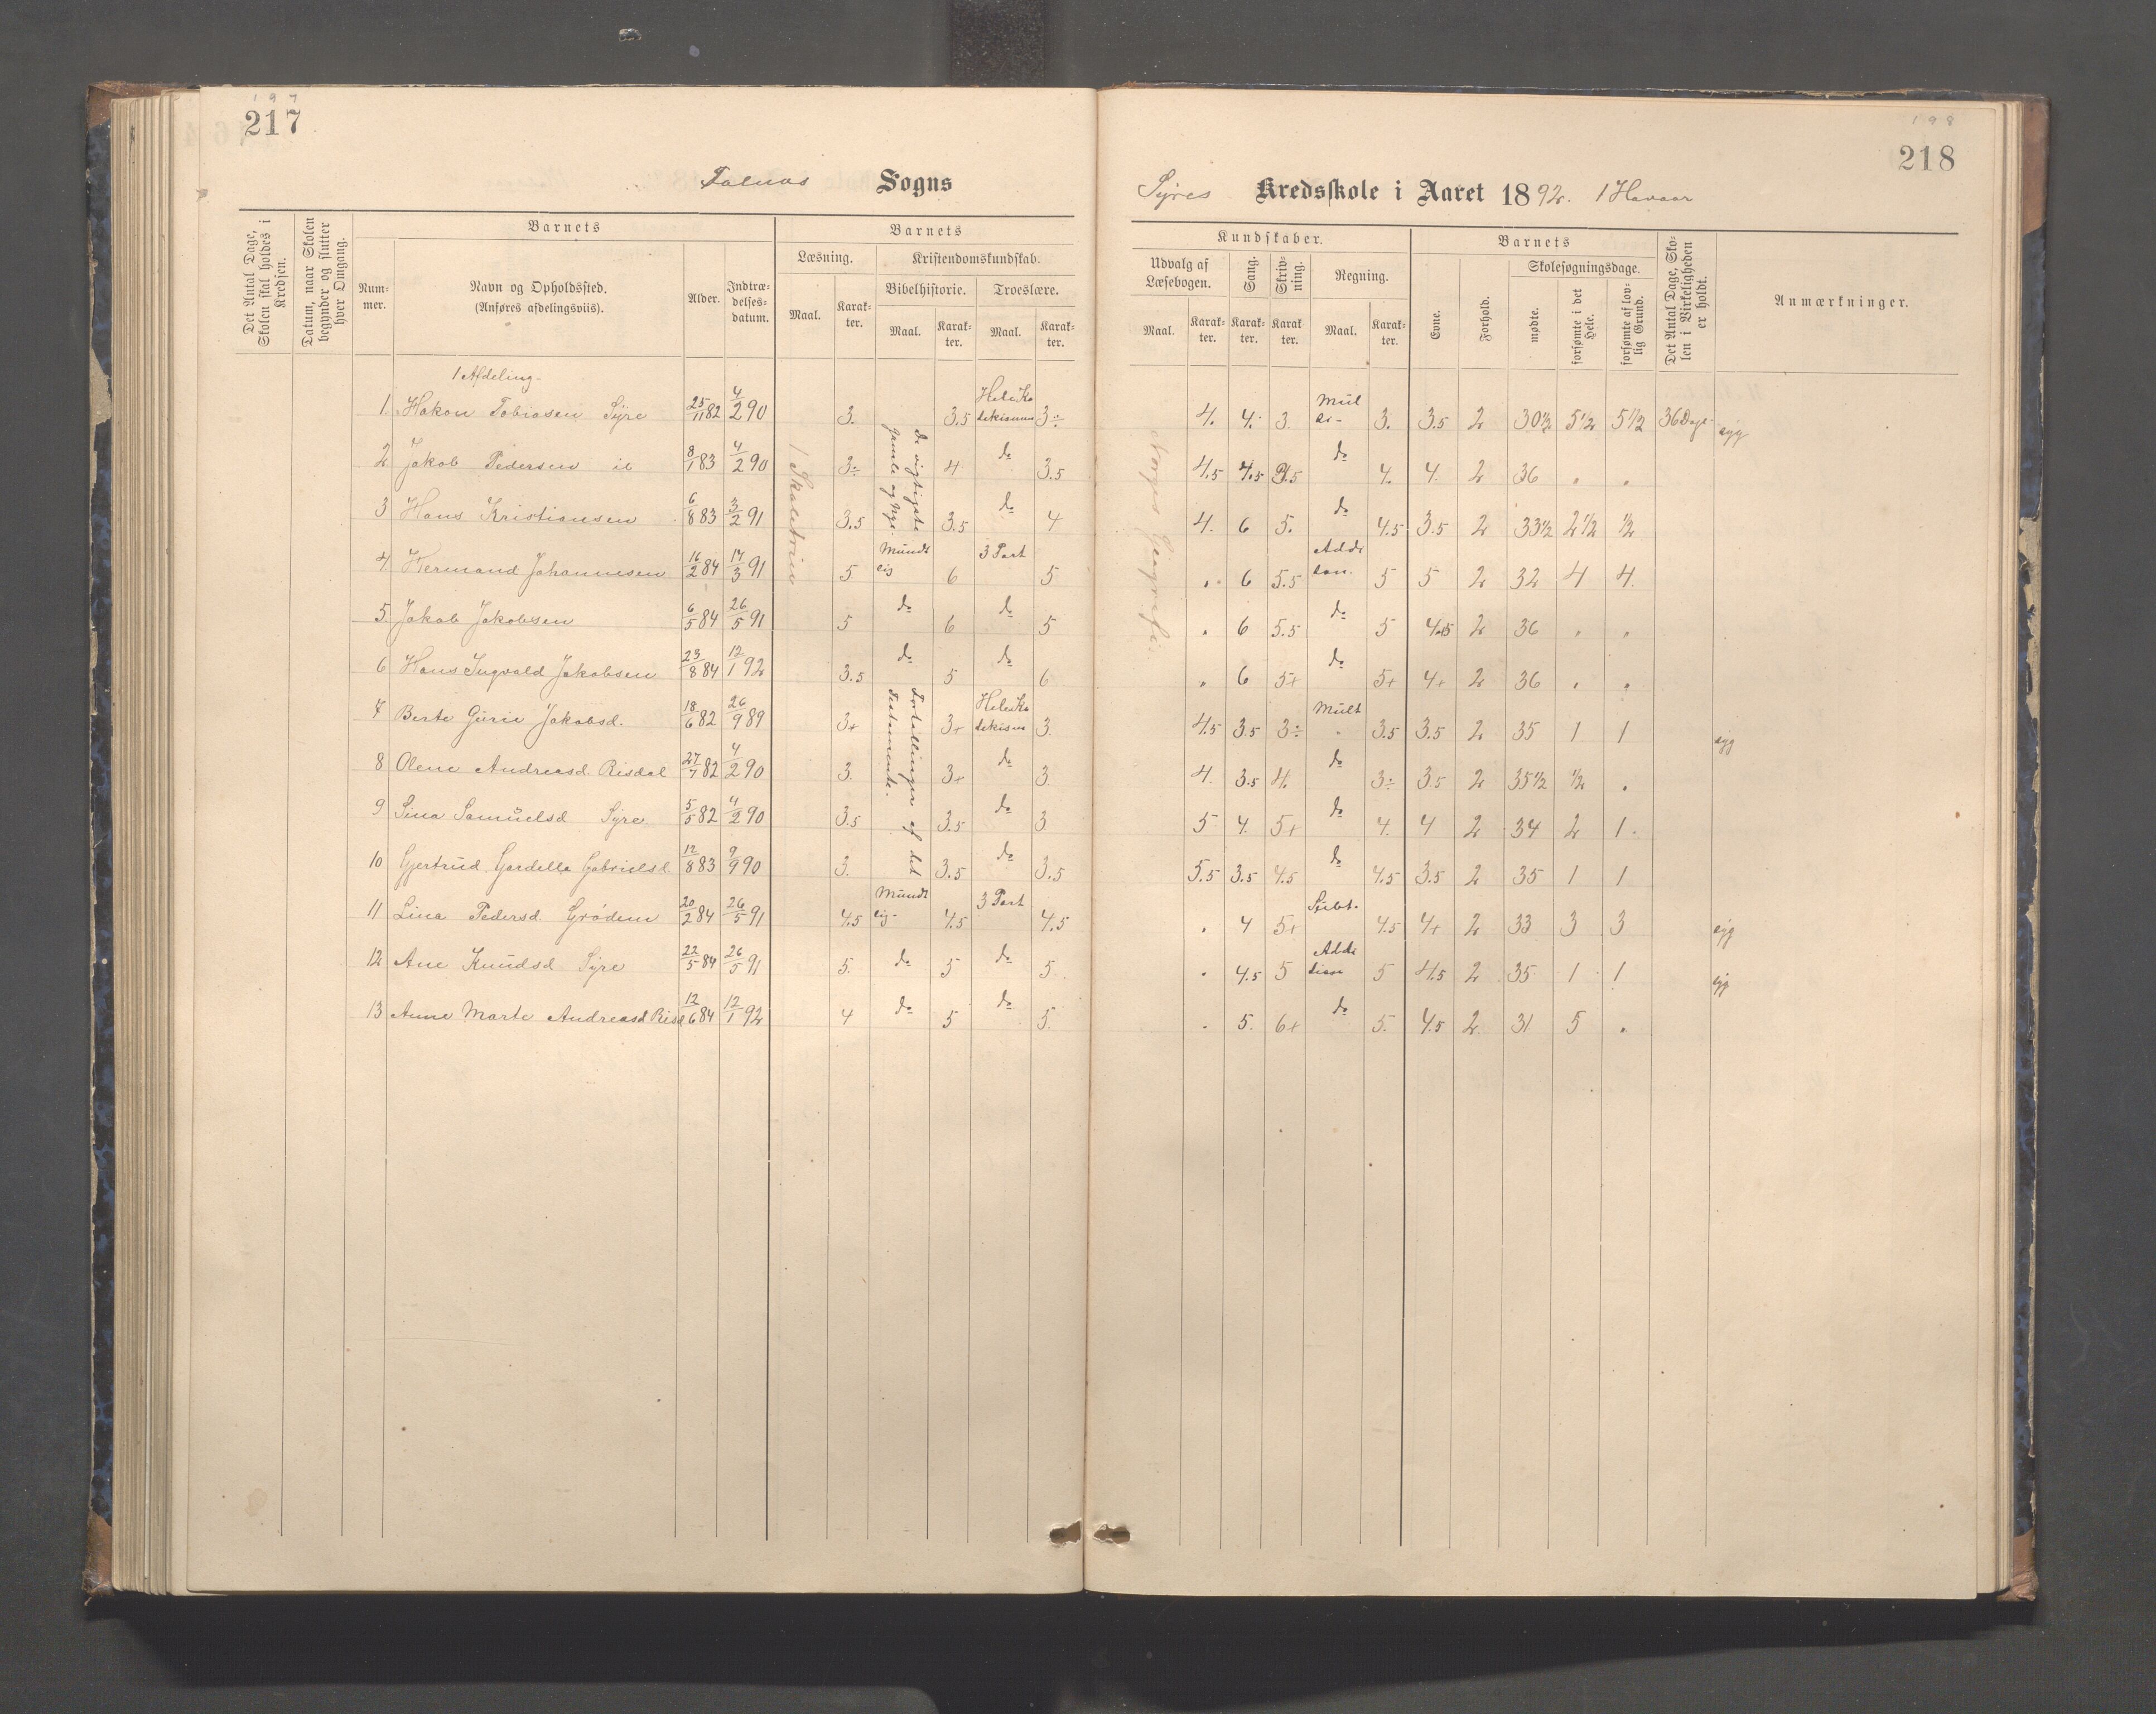 197
217
Falnæs Sogns
Det Antal Dage, Skolen skal holdes i Kredsen.
Datum, naar Skolen begynder og slutter hver Omgang.
Barnets
Nummer.
Navn og Opholdssted.
(Anføres afdelingsviis).
Alder.
Indtrædelsesdatum.
Barnets
Læsning.
Maal.
Karakter.
Kristendomskundskab.
Bibelhistorie.
Maal.
Karakter.
Troeslære.
Maal.
Karakter.
1 Afdeling.
1. Hakon Tobiasen Syre 25/11 82 4/2 90 3. 3.5 Hele Katekismus 3÷
2 Jakob Pedersen ib 8/1 83 4/2 90 3÷ 4 do 3.5
3 Hans Kristiansen 6/8 83 3/2 91 3.5 3.5 do 4
4 Hermand Johannesen 16/2 84 17/3 91 5 Mundtlig 6 3 Part 5
5. Jakob Jakobsen 6/5 84 26/5 91 5 do 6 do 5
6 Hans Ingvald Jakobsen 23/8 84 12/1 92 3.5 do 5 do 6
7 Berte Gurie Jakobsd. 18/6 82 26/9 89 3+ 3+ Hele Katekism 3
8 Olene Andreasd. Risdal 27/7 82 4/2 90 3. 3+ do 3
9 Sina Samuelsd Syre 5/5 82 4/2 90 3.5 3.5 do 3
10 Gjertrud Gardella Gabrielsd. 12/8 83 9/9 90 3. 3.5 do 3.5
11 Lina Pedersd. Grødem 20/2 84 26/5 91 4.5 Mundtlig 4.5 3 Part 4.5
12 Ane Knudsd Syre 22/5 84 26/5 91 5. do 5 do 5
13 Anne Marte Andreasd Risd 12/6 84 12/1 92 4 do 5 do 5.
1 Skoletrin
De vigtigste
gamle og nye
Fortellinger af det
Testamente.
198
218
Syres Kredsskole i Aaret 1892. 1 Havaar
Kundskaber.
Udvalg af Læsebogen.
Maal.
Karakter.
Sang.
Karakter.
Skrivning.
Karakter.
Regning.
Maal.
Karakter.
Barnets
Evne.
Forhold.
Skolesøgningsdage.
mødte.
forsømte i det Hele.
forsømte af lovlig Grund.
Det Antal Dage, Skolen i Virkeligheden er holdt.
Anmærkninger.
Norges Geografi.
4. 4. 3. 3. 3.5 2 30½ 5½ 5½ 36 Dage syg
4.5 4.5 3.5 do 4. 4. 2 36 " "
4. 6 5. do 4.5 3.5 2 33½ 2½ ½
" 6 5.5 5 5 2 32 4 4.
" 6 5.5 do 5 4.5 2 36 " "
" 6 5+ do 5+ 4+ 2 36 " "
4.5 3.5 3÷ Mult 3.5 3.5 2 35 1 1 syg
4. 3.5 4. do 3÷ 3.5 2 35½ ½ "
5 4. 5+ do 4. 4 2 34 2 1.
5.5 3.5 4.5 do 4.5 3.5 2 35 1 1
" 4 5+ Subt. 4.5 4+ 2 33 3 3 syg
" 4.5 5 5 4.5 2 35 1 1 syg
" 5. 6+ do 5. 4.5 2 31 5 "